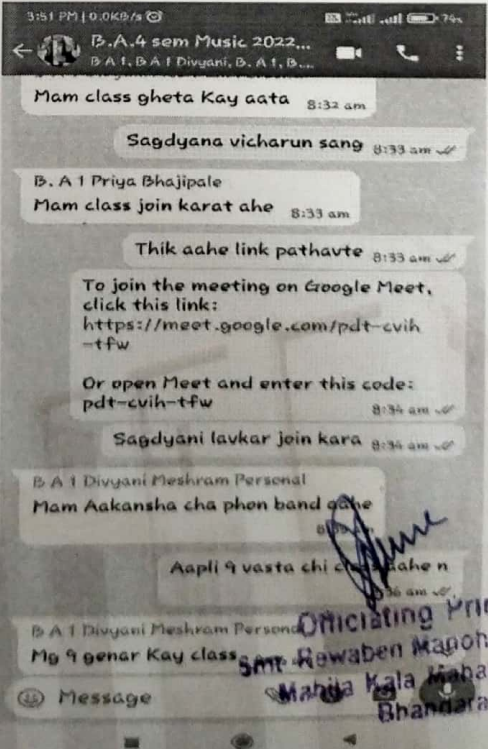 3:51 PM | 0.0KB/s
74%
B.A.4 sem Music 2022...
B A 1, B A 1 Divyani, B. A 1, B....
Mam class gheta Kay aata 8:32 am
Sagdyana vicharun sang 8:33 am
B. A 1 Priya Bhajipale
Mam class join karat ahe 8:33 am
Thik aahe link pathavte 8:33 am
To join the meeting on Google Meet,
click this link:
https://meet.google.com/pdt-cvih
-tfw
Or open Meet and enter this code:
pdt-cvih-tfw
8:34 am
Sagdyani lavkar join kara 8:34 am
B A 1 Divyani Meshram Personal
Mam Aakansha cha phon band aahe
Aapli 9 vasta chi class aahe n
B A 1 Divyani Meshram Personal
Mg 9 genar Kay class
Officiating Prin
Smt. Rewaben Manoh
Mahila Kala Maha
Bhandara
Message